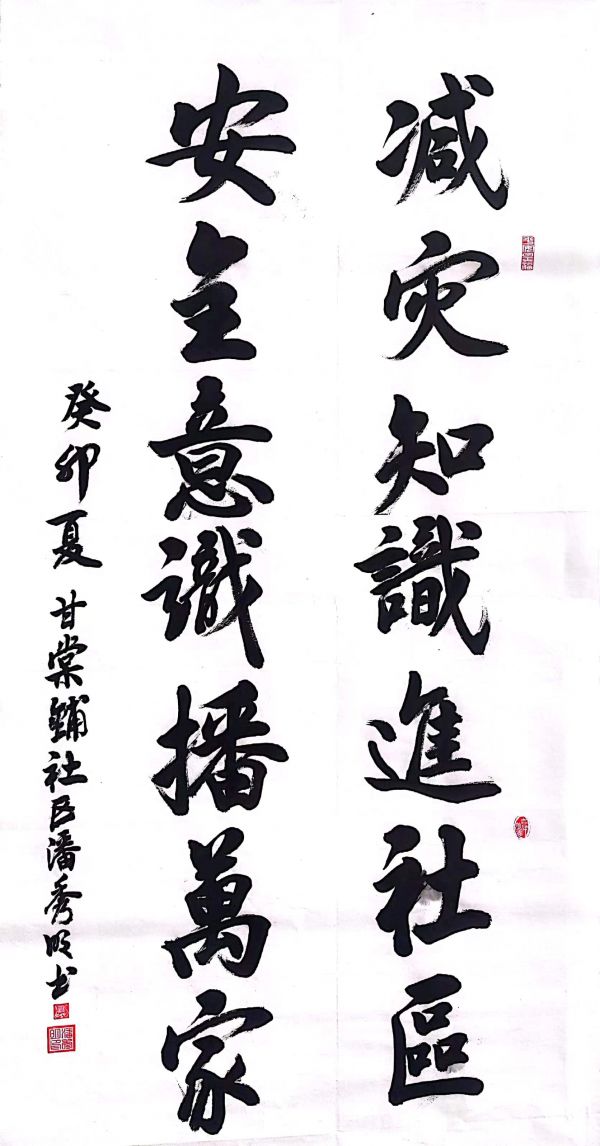 减灾知識進社區
安全意識播萬家
癸卯夏 甘棠鋪社區潘秀明书